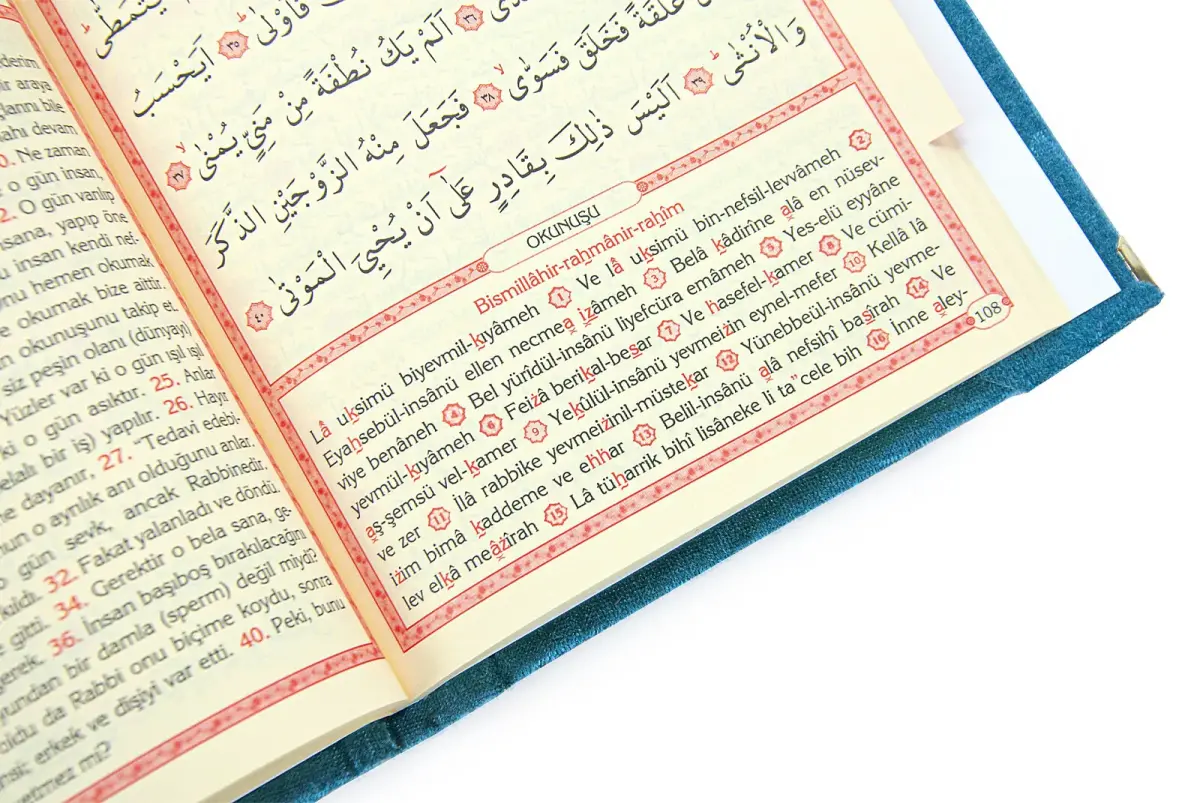 فَاَوْلٰى ٣٥ اَيَحْسَبُ
٣٦ اَلَمْ يَكُ نُطْفَةً مِنْ مَنِيٍّ يُمْنٰى ٣٧
عَلَقَةً فَخَلَقَ فَسَوّٰى ٣٨ فَجَعَلَ مِنْهُ الزَّوْجَيْنِ الذَّكَرَ
وَالْاُنْثٰى ٣٩ اَلَيْسَ ذٰلِكَ بِقَادِرٍ عَلٰٓى اَنْ يُحْيِيَ الْمَوْتٰى ٤٠
OKUNUŞU
Bismillâhir-rahmânir-rahîm
Lâ uksimü biyevmil-kıyâmeh 1 Ve lâ uksimü bin-nefsil-levvâmeh 2
Eyahsebül-insânü ellen necmea izâmeh 3 Belâ kâdirîne alâ en nüsev-
viye benâneh 4 Bel yürîdül-insânü liyefcüra emâmeh 5 Yes-elü eyyâne
yevmül-kıyâmeh 6 Feizâ berikal-besar 7 Ve hasefel-kamer 8 Ve cümi-
aş-şemsü vel-kamer 9 Yekûlül-insânü yevmeizin eynel-mefer 10 Kellâ lâ
ve zer 11 İlâ rabbike yevmeizinil-müstekar 12 Yünebbeül-insânü yevme-
izim bimâ kaddeme ve ehhar 13 Belil-insânü alâ nefsihî basîrah 14 Ve
lev elkâ meâzîrah 15 Lâ tüharrik bihî lisâneke li ta"cele bih 16 İnne aley-
108
ir araya
bile
devam
Ne zaman
o gün insan,
2. O gün varılıp
yapıp öne
u insan kendi nef-
hemen okumak
okumak bize aittir.
okunuşunu takip et.
siz peşin olanı (dünyayı)
Yüzler var ki o gün ışıl ışıl
ki o gün asıktır. 25. Anlar
bir iş) yapılır. 26. Hayır
dayanır, 27. "Tedavi edebi-
o ayrılık anı olduğunu anlar.
gün sevk, ancak Rabbinedir.
32. Fakat yalanladı ve döndü.
gitti. 34. Gerektir o bela sana, ge-
36. İnsan başıboş bırakılacağını
bir damla (sperm) değil miydi?
da Rabbi onu biçime koydu, sonra
erkek ve dişiyi var etti. 40. Peki, bunu
etmez mi?